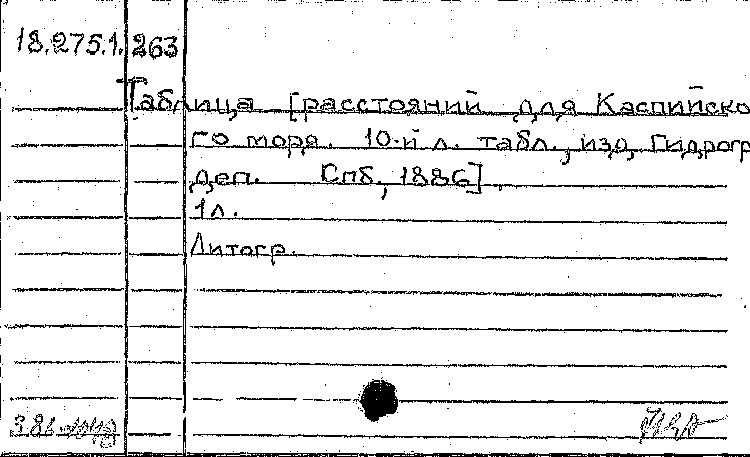 18.275.1.263
Таблица [расстояний для Каспийско
го моря. 10-й л. табл., изд. Гидрогр
деп. Спб., 1886].
1 л.
Литогр.